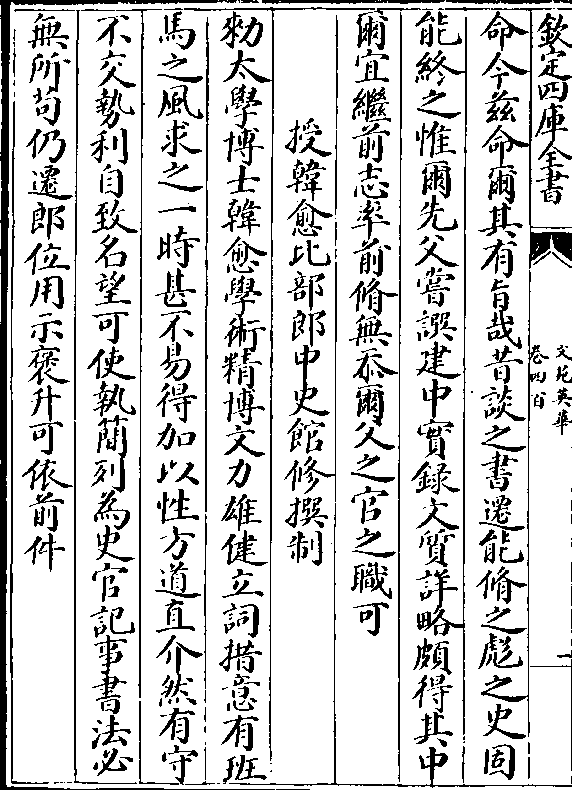 欽定四庫全書
文苑英華
卷四百
一
命今兹命爾其有旨哉昔談之書遷能脩之彪之史固
能終之惟爾先父嘗譔建中實錄文質詳略頗得其中
爾宜繼前志率前脩無忝爾父之官之職可
授韓愈比部郎中史館修撰制
勑太學博士韓愈學術精博文力雄健立詞措意有班
馬之風求之一時甚不易得加以性方道直介然有守
不交勢利自致名望可使執簡列為史官記事書法必
無所苟仍遷郎位用示褒升可依前件